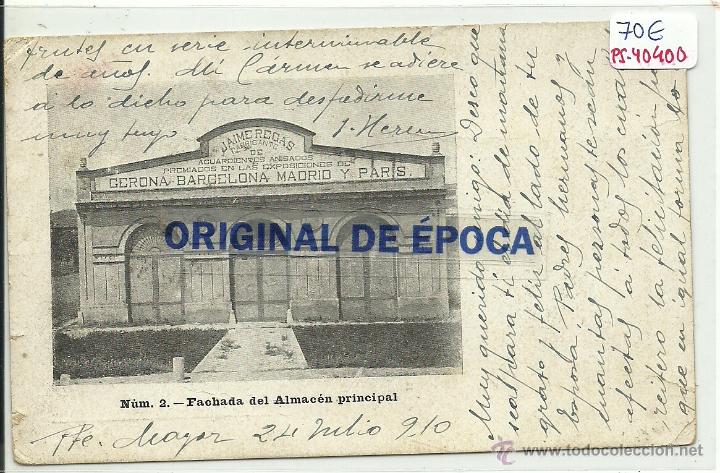 frutes en serie interminable
de años. Mi Cármen se adiere
á lo dicho para despedirme
muy tuyo
70€
PS-40400
JAIME ROGAS
FABRICANTE
DE
AGUARDIENTES ANISADOS
PREMIADOS EN LAS EXPOSICIONES DE
GERONA BARCELONA MADRID Y PARIS.
ORIGINAL DE ÉPOCA
Núm. 2.—Fachada del Almacén principal
Mayor 24 Julio 910
Muy querido amigo: Deseo que
sea para ti el dia de mañana
grato y feliz al lado de tu
Esposa, Padres hermanos y
cuantas personas te sedn
afectas á todos los cua
reitero la felicitación
que en igual forma
todocoleccion
www.todocoleccion.net